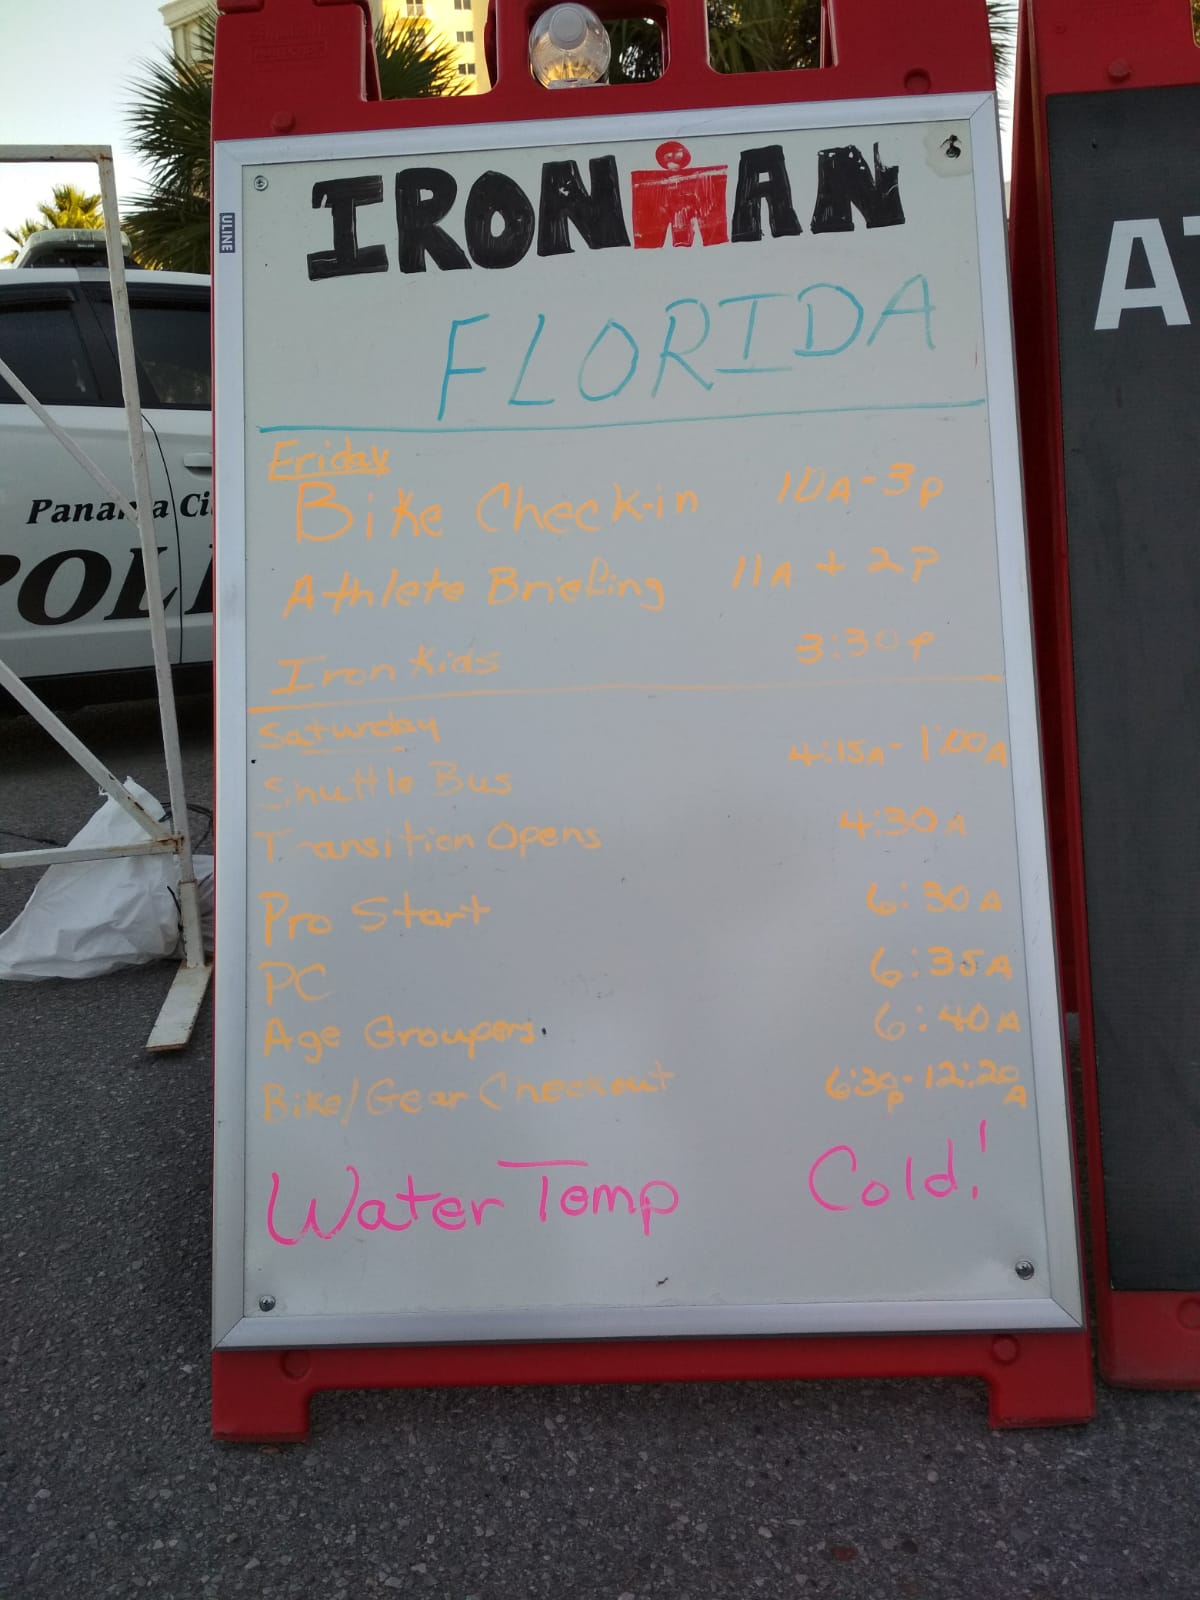 IRONMAN
FLORIDA
ULINE
Friday
Bike Check-in 10A-3p
Athlete Briefing 11A + 2P
Iron Kids 3:30p
Saturday
Shuttle Bus 4:15A-1:00A
Transition Opens 4:30A
Pro Start 6:30A
PC 6:35A
Age Groupers 6:40A
Bike/Gear Checkout 6:30p-12:20A
Water Temp Cold!
Panama Ci
POLI
AT